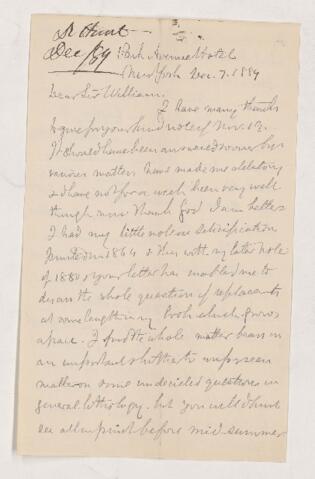 St Hunt
Dec/89
Park Avenue Hotel
New York Dec. 7. 1889
Dear Sir William.
I have many thanks
to give for your kind note of Nov. 19.
It should have been answered sooner but
various matters have made me dilatory
& I have not for a week been very well
though now thank God I am better
I had my little note on silicification
printed in 1864 & this with my later note
of 1880 & your letter has enabled me to
discuss the whole question of replacements
at some length in my book which grows
apace. I find the whole matter bears in
an important & hitherto unforeseen
matter on some undecided questions in
general lithology. but you will I trust
see all in print before mid summer